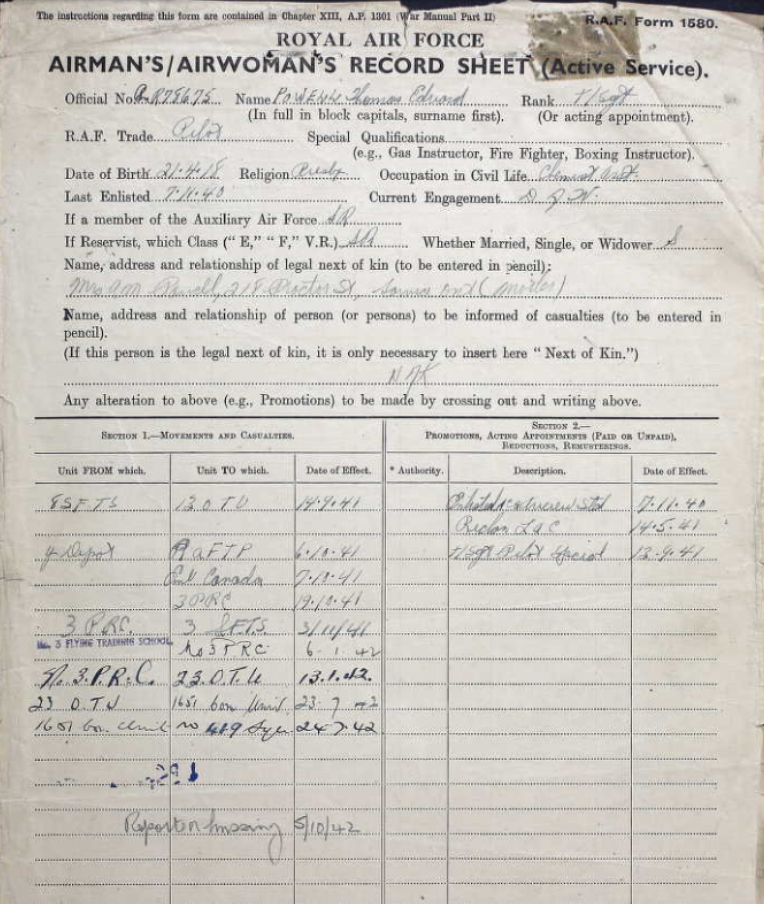 The instructions regarding this form are contained in Chapter XIII, A.P. 1301 (War Manual Part II)
R.A.F. Form 1580.
ROYAL AIR FORCE
AIRMAN'S/AIRWOMAN'S RECORD SHEET (Active Service).
Official No. R78675 Name POWELL Thomas Edward Rank T/Sgt
(In full in block capitals, surname first). (Or acting appointment).
R.A.F. Trade Pilot Special Qualifications
(e.g., Gas Instructor, Fire Fighter, Boxing Instructor).
Date of Birth 21.4.18 Religion Presby Occupation in Civil Life Chemist
Last Enlisted 7.11.40 Current Engagement D. of W.
If a member of the Auxiliary Air Force SR
If Reservist, which Class (“ E,” “ F,” V.R.) SR Whether Married, Single, or Widower S
Name, address and relationship of legal next of kin (to be entered in pencil);
Mrs Powell, 218 Proctor St, Sarnia Ont (Mother)
Name, address and relationship of person (or persons) to be informed of casualties (to be entered in
pencil).
(If this person is the legal next of kin, it is only necessary to insert here “ Next of Kin.”)
Any alteration to above (e.g., Promotions) to be made by crossing out and writing above.
SECTION 1.—MOVEMENTS AND CASUALTIES.
SECTION 2.—
PROMOTIONS, ACTING APPOINTMENTS (PAID OR UNPAID),
REDUCTIONS, REMUSTERINGS.
Unit FROM which. Unit TO which. Date of Effect. * Authority. Description. Date of Effect.
8 SFTS 13 OTU 14.9.41 7.11.40
LAC 14.5.41
Y Depot RAFTP 6.10.41 T/Sgt Pilot Special 13.9.41
Canada 7.10.41
3 PRC 19.10.41
3 P.R.C. 3 SFTS 3/11/41
No. 3 FLYING TRAINING SCHOOL No 3 PRC 6.1.42
No. 3.P.R.C. 23.O.T.U 13.1.42.
23 O.T.U 1651 Con Unit 23.7.42
1651 Con. Unit No 419 Sqn 24.7.42
Report on missing 5/10/42